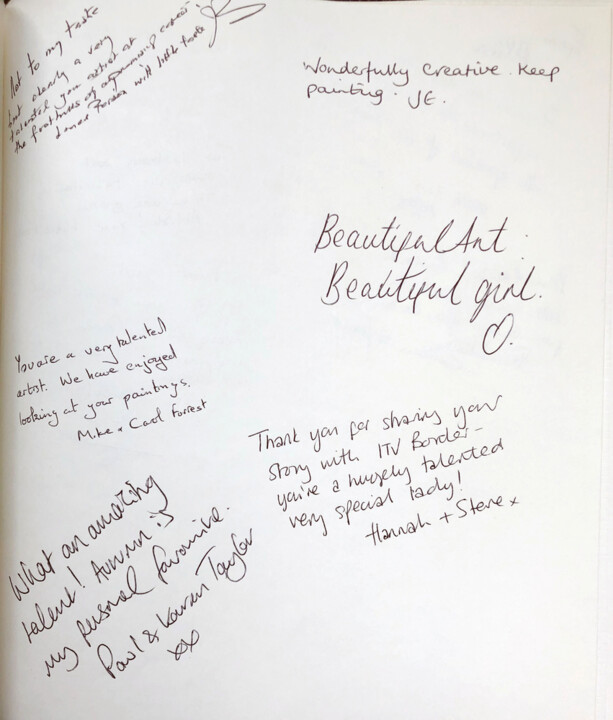 Not to my taste
but clearly a very
talented young artist at
the foothills of
will
Wonderfully Creative. Keep
painting. JE.
Beautiful Art.
Beautiful girl.
You are a very talented
artist. We have enjoyed
looking at your paintings.
Mike + Carol Forrest
Thank you for sharing your
story with ITV Border –
you're a hugely talented
very special lady!
Hannah + Steve x
What an amazing
talent! Autumn is
my personal favourite.
Paul & Karen Taylor
xx